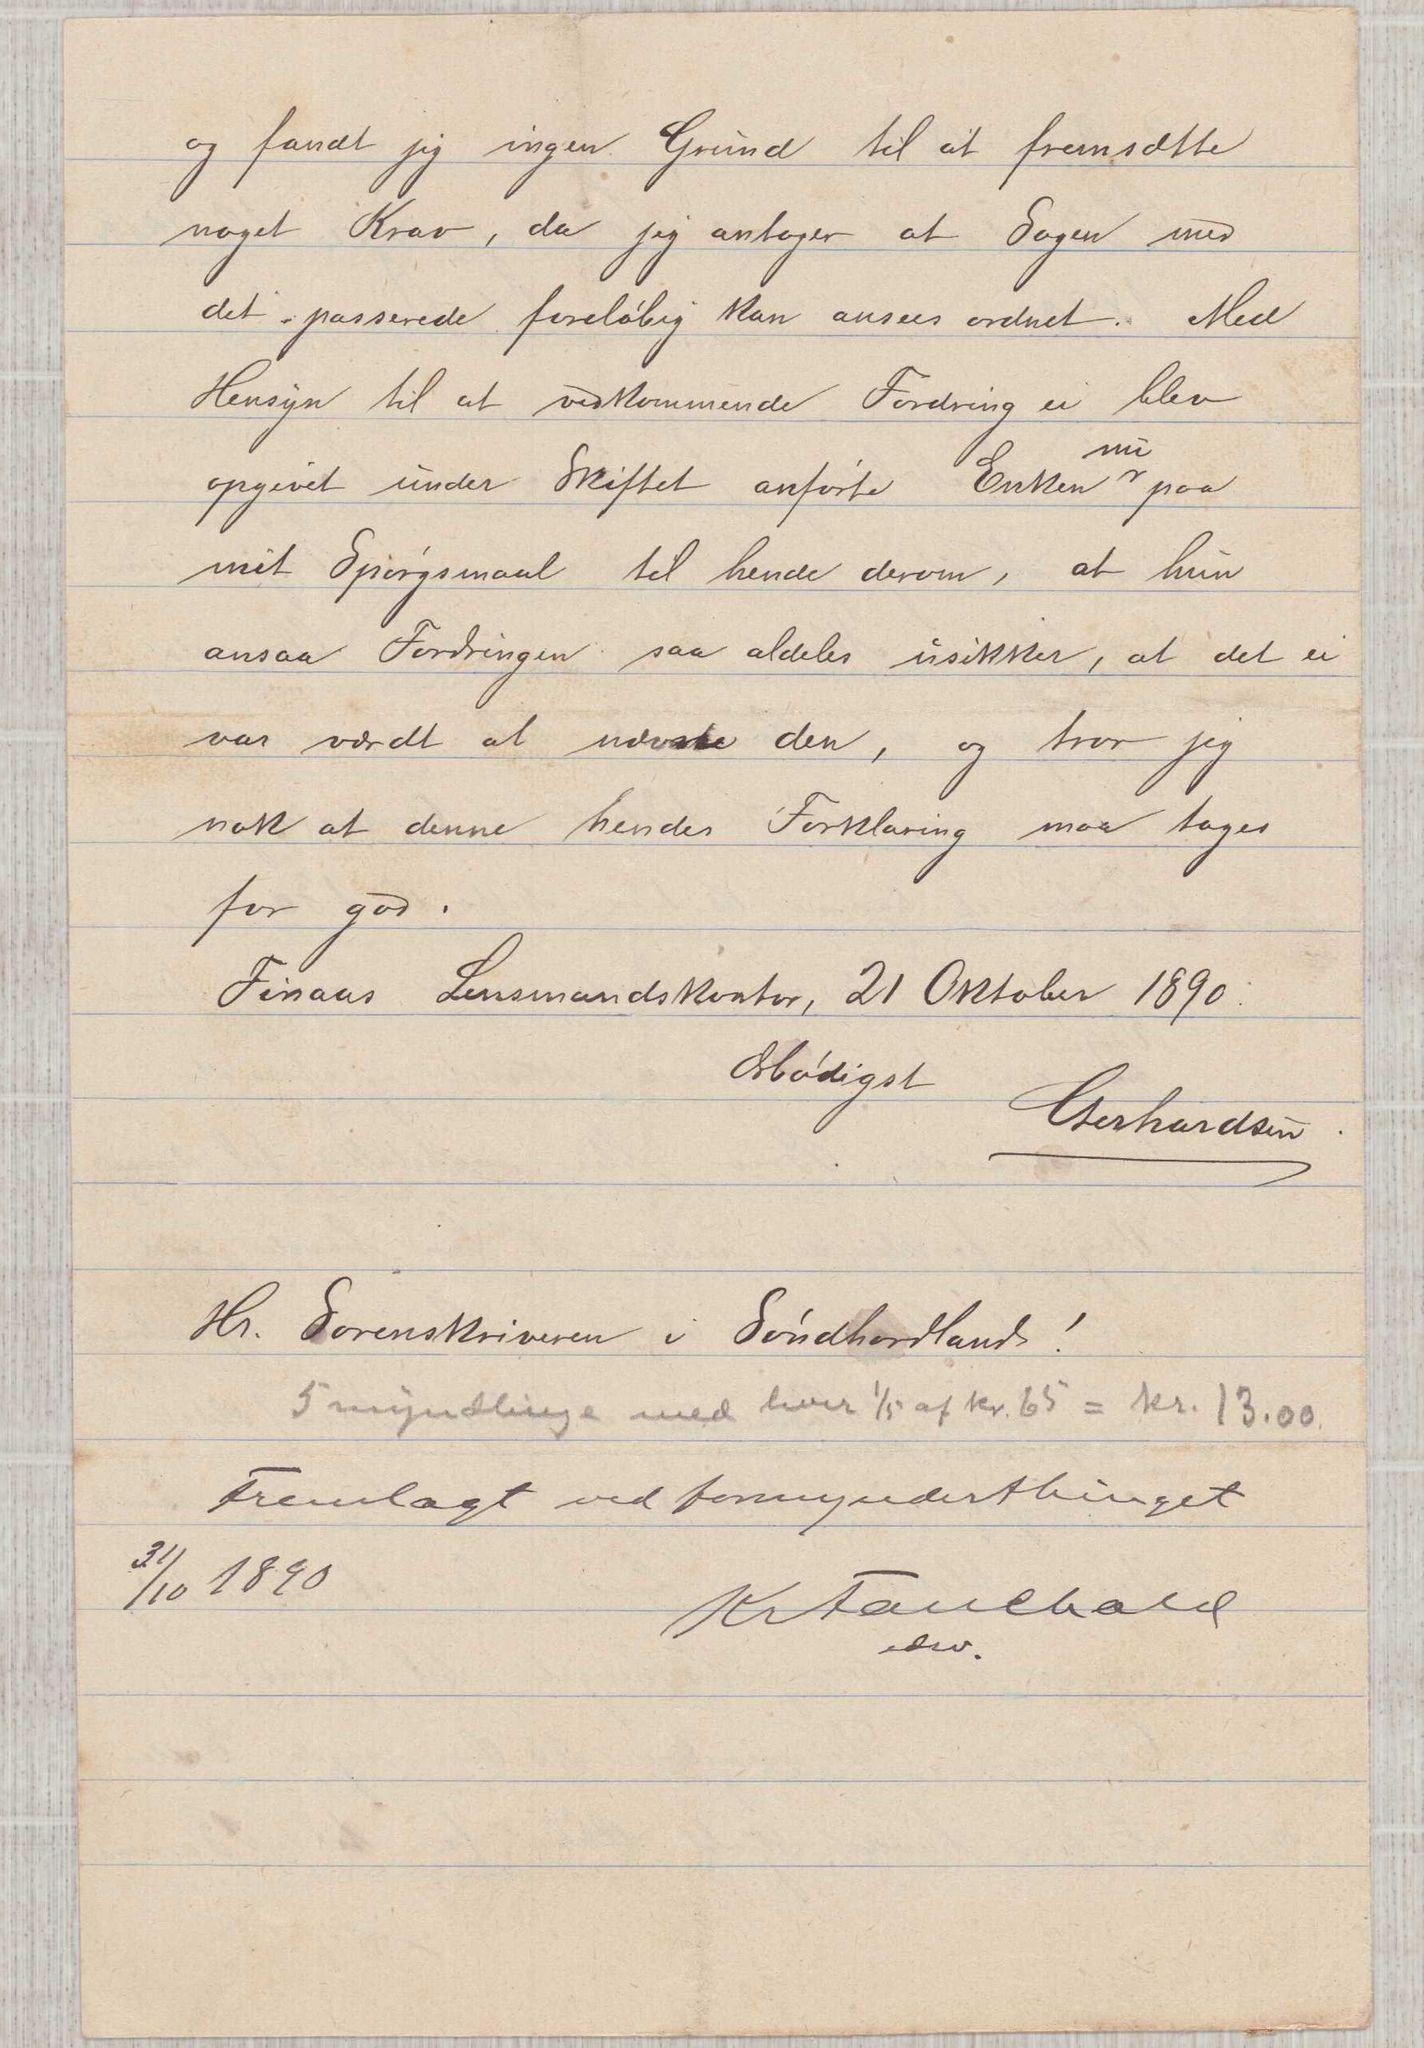 og fandt jeg ingen Grund til at fremsætte
noget Krav, da jeg antager at Sagen med
det passerede foreløbig kan ansees ordnet. Med
Hensyn til at vedkommende Fordring ei blev
opgivet under Skiftet anførte Enken nu paa
mit Spørgsmaal til hende derom, at hun
ansaa Fordringen saa aldeles usikker, at det ei
var værdt at nævne den, og tror jeg
nok at denne hendes Forklaring maa tages
for god.
Finaas Lensmandskontor, 21 Oktober 1890.
Ærbødigst
Gerhardsen.
Hr. Sorenskriveren i Søndhordland!
5 myndlinge med hver 1/5 af kr. 65 = kr. 13.00.
Fremlagt ved formynderthinget
31/10 1890
Kr